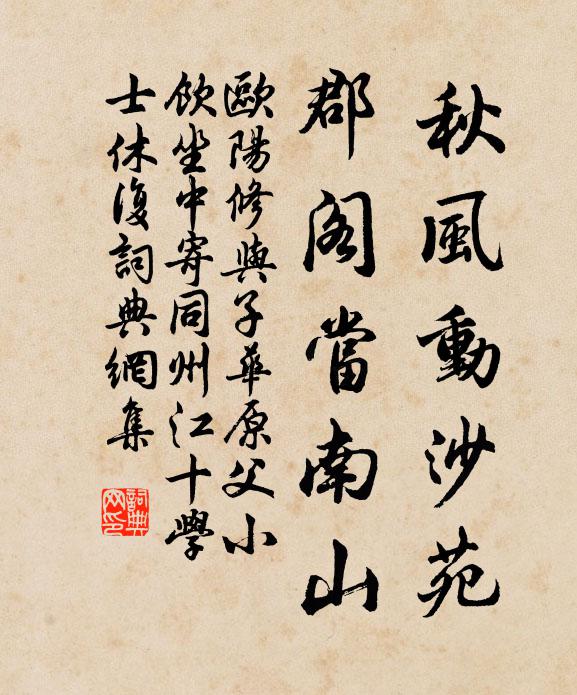 秋風動沙苑
郡閣當南山
歐陽修與子華原父小
飲坐中寄同州江十學
士休復詞典網集
詞典
网印